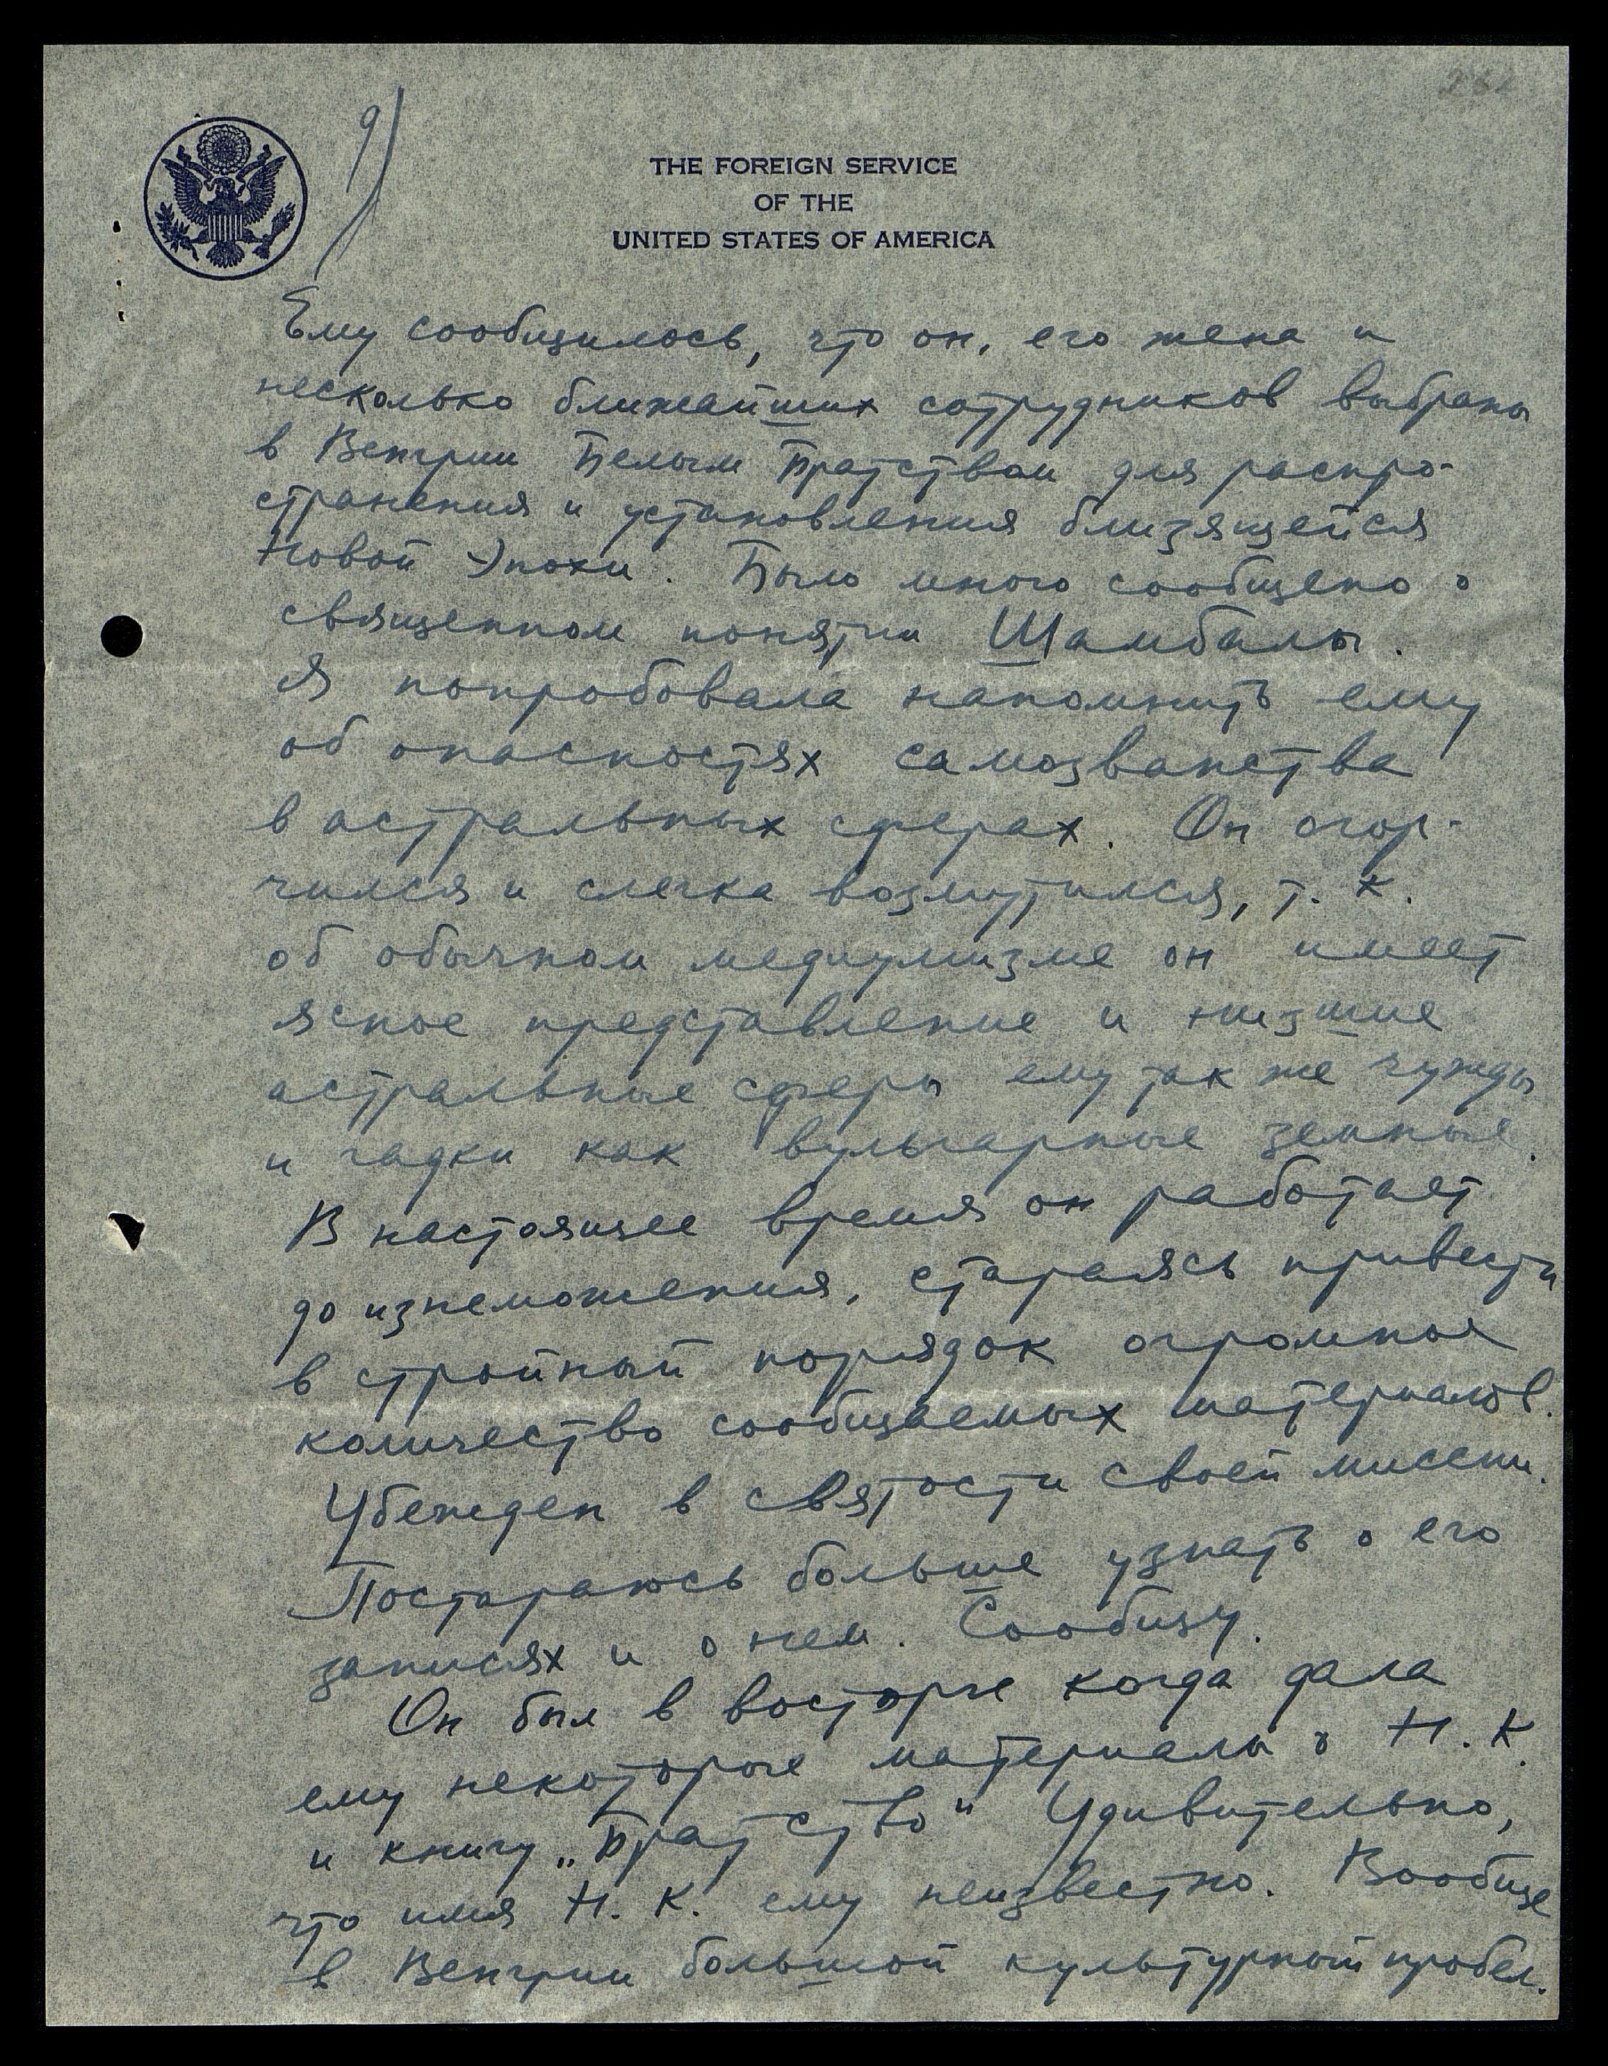 9)
THE FOREIGN SERVICE
OF THE
UNITED STATES OF AMERICA
Ему сообщилось, что он, его жена и
несколько ближайших сотрудников выбраны
в Венгрии Белым Братством для распро-
странения и установления близящейся
Новой Эпохи. Было много сообщено о
священном понятии Шамбалы.
Я попробовала напомнить ему
об опасностях самозванства
в астральных сферах. Он огор-
чился и слегка возмутился, т. к.
об обычном медиумизме он имеет
ясное представление и низшие
астральные сферы ему так же чужды
и гадки как вульгарные земные.
В настоящее время он работает
до изнеможения, стараясь привести
в стройный порядок огромное
количество сообщаемых материалов.
Убежден в святости своей миссии.
Постараюсь больше узнать о его
записях и о нем. Сообщу.
Он был в восторге когда дала
ему некоторые материалы о Н. К.
и книгу „Братство" Удивительно,
что имя Н. К. ему неизвестно. Вообще
в Венгрии большой культурный пробел.